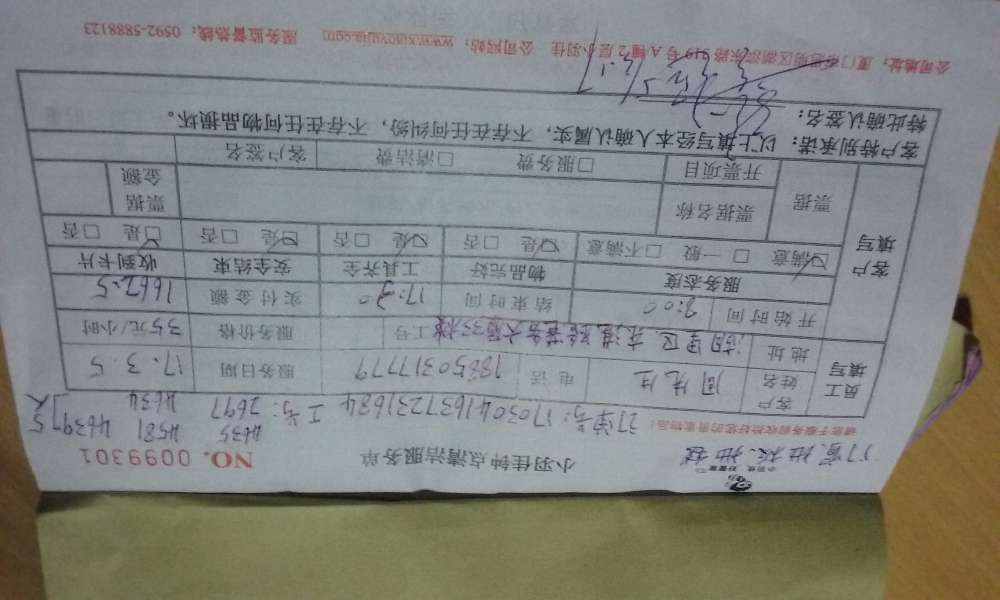 小羽佳钟点清洁服务单
NO. 0099301
门窗、地板、地毯
请您于服务前收检好您的贵重物品:
订单号: 1703041637231684 工号: 2697 4634
4635 4581 46397 5人
员工填写
客户姓名 周先生 电话 18850317779 服务日期 17.3.5
地址 湖里区 工号 服务价格 35元/小时
开始时间 9:00 结束时间 17:30 实付金额 1662.5
客户填写
服务态度 物品完好 工具齐全 安全结束 收到卡片
☑满意 □一般 □不满意 ☑是 □否 ☑是 □否 ☑是 □否 ☑是 □否
票据 票据名称 票据金额
开票项目 □服务费 □清洁费 客户签名
客户特别承诺: 以上填写经本人确认属实,不存在任何纠纷,不存在任何物品损坏。
特此确认签名:
公司地址: 厦门市思明区湖滨东路319号A幢2层小羽佳 公司网站: www.xiaoyujia.com 服务监督热线: 0592-5888123